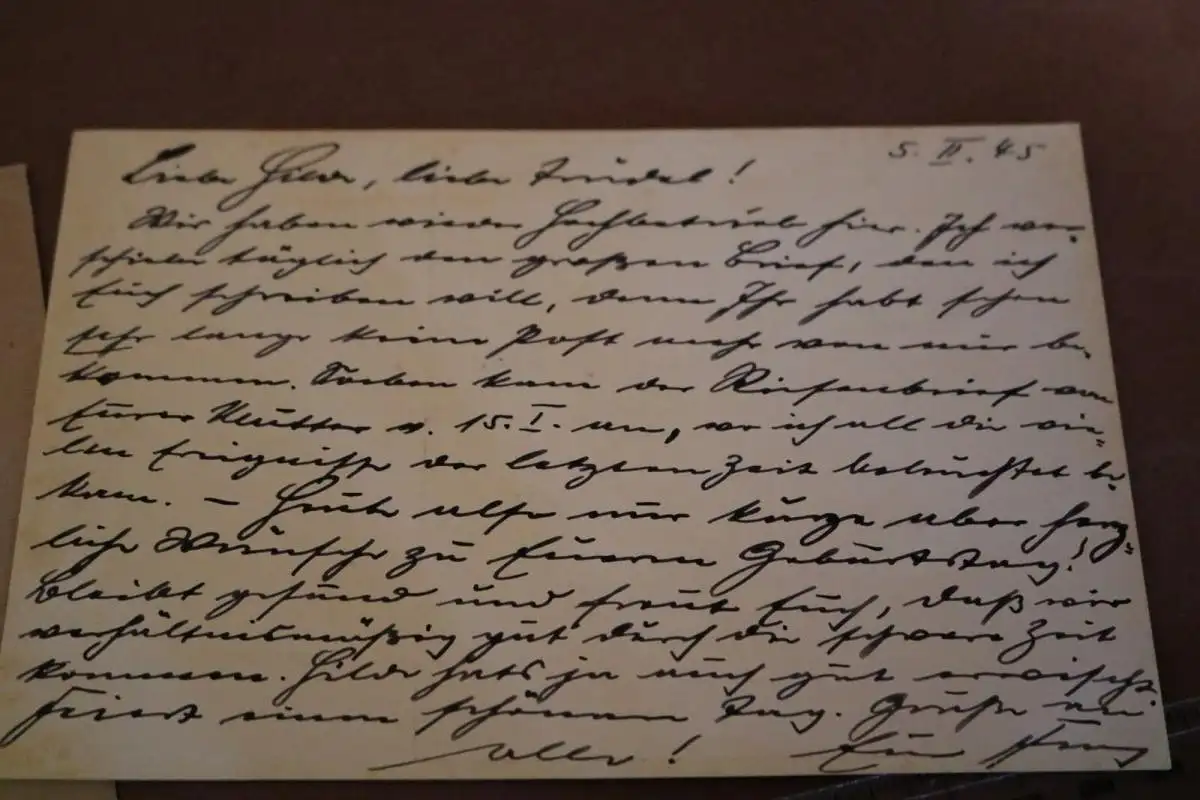 5. II. 45
Liebe Hilde, liebe Trudel!
Wir haben wieder Hochbetrieb hier. Ich ver-
schiebe täglich den großen Brief, den ich
Euch schreiben will, denn Ihr habt schon
sehr lange keine Post mehr von mir be-
kommen. Soeben kam der Riesenbrief von
Eurer Mutter v. 15. I. an, wo ich all die vie-
len Ereignisse der letzten Zeit beleuchtet be-
kam. – Heute also nur kurze aber herz-
liche Wünsche zu Eurem Geburtstag!
Bleibt gesund und freut Euch, daß wir
verhältnismäßig gut durch die schwere Zeit
kommen. Hilde hats ja auch gut erwischt.
Feiert einen schönen Tag. Grüße an
alle! Euer